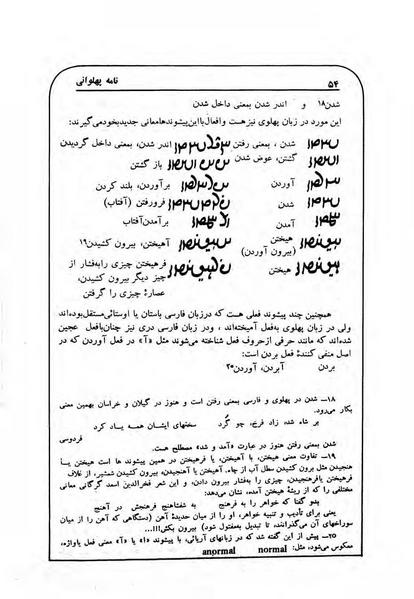 ۵۴
نامه پهلوانی
شدن۱۸ و اندر شدن بمعنی داخل شدن
این مورد در زبان پهلوی نیز هست و افعال با این پیشوندها معانی جدید بخود می‌گیرند:
شدن ، بمعنی رفتن
اندر شدن، بمعنی داخل گردیدن
گشتن، عوض شدن
باز گشتن
آوردن
برآوردن، بلند کردن
شدن
فرورفتن (آفتاب)
آمدن
برآمدن آفتاب
هیختن
(بیرون آوردن)
آهیختن، بیرون کشیدن۱۹
هیختن
فرهیختن چیزی را بفشار از
چیز دیگر بیرون کشیدن،
عصارهٔ چیزی را گرفتن
همچنین چند پیشوند فعلی هست که در زبان فارسی باستان یا اوستائی مستقل بوده‌اند
ولی در زبان پهلوی به فعل آمیخته‌اند ، و در زبان فارسی دری نیز چنان با فعل عجین
شده‌اند که مانند حرفی از حروف فعل شناخته می‌شوند مثل «آ» در فعل آوردن که در
اصل منفی کنندهٔ فعل بردن است:
بردن آبردن، آوردن۲۰
۱۸ــ شدن در پهلوی و فارسی بمعنی رفتن است و هنوز در گیلان و خراسان بهمین معنی
بکار می‌رود.
بر شاه شد، زاد فرخ، چو گرد سخنهای ایشان همه یاد کرد
فردوسی
شدن بمعنی رفتن هنوز در عبارت «آمد و شد» مصطلح است.
۱۹ــ تفاوت معنی هیختن، با آهیختن، یا فرهیختن در همین پیشوند ها است هیختن یا
هنجیدن مثل برون کشیدن سطل آب از چاه. آهیختن یا آهنجیدن، بیرون کشیدن شمشیر، از غلاف
فرهیختن یا فرهنجیدن، چیزی را بفشار بیرون دادن، و این شعر فخرالدین اسعد گرگانی معانی
مختلفی را که از ریشهٔ هیختن آمده، نشان می‌دهد:
بشو گفتا که خواهر را به فرهنج به شفتاهنج فرهنجش در آهنج
یعنی برای تأدیب و تنبیه خواهر، او را از میان حدیدهٔ آهن (دستگاهی که آهن را از میان
سوراخهای آن می‌گذرانند، تا تبدیل به مفتول شود) بیرون بکش!!!...
۲۰ــ پیش از این گفته شد که در زبانهای آریائی، با پیشوند «ا» یا «آ» معنی فعل یا واژه،
معکوس می‌شود، مثل: normal anormal